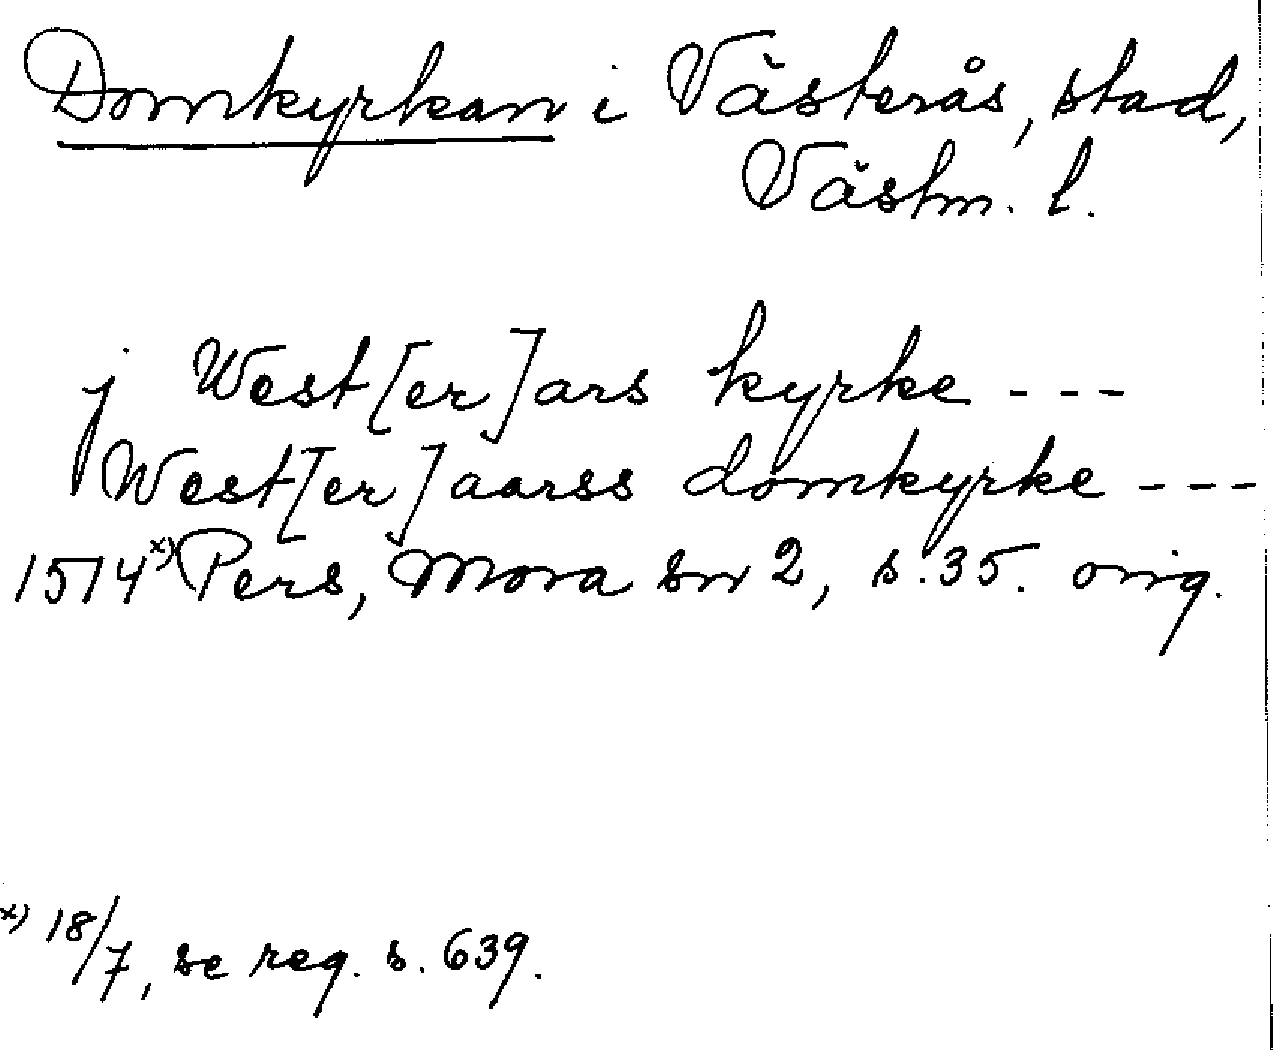 Domkyrkan i Västerås, stad,
Västm. l.
j West[er]ars kyrke ---
West[er]aarss domkyrke ---
1514x) Pers, Mora sn 2, s. 35. orig.
x) 18/7, se reg. s. 639.